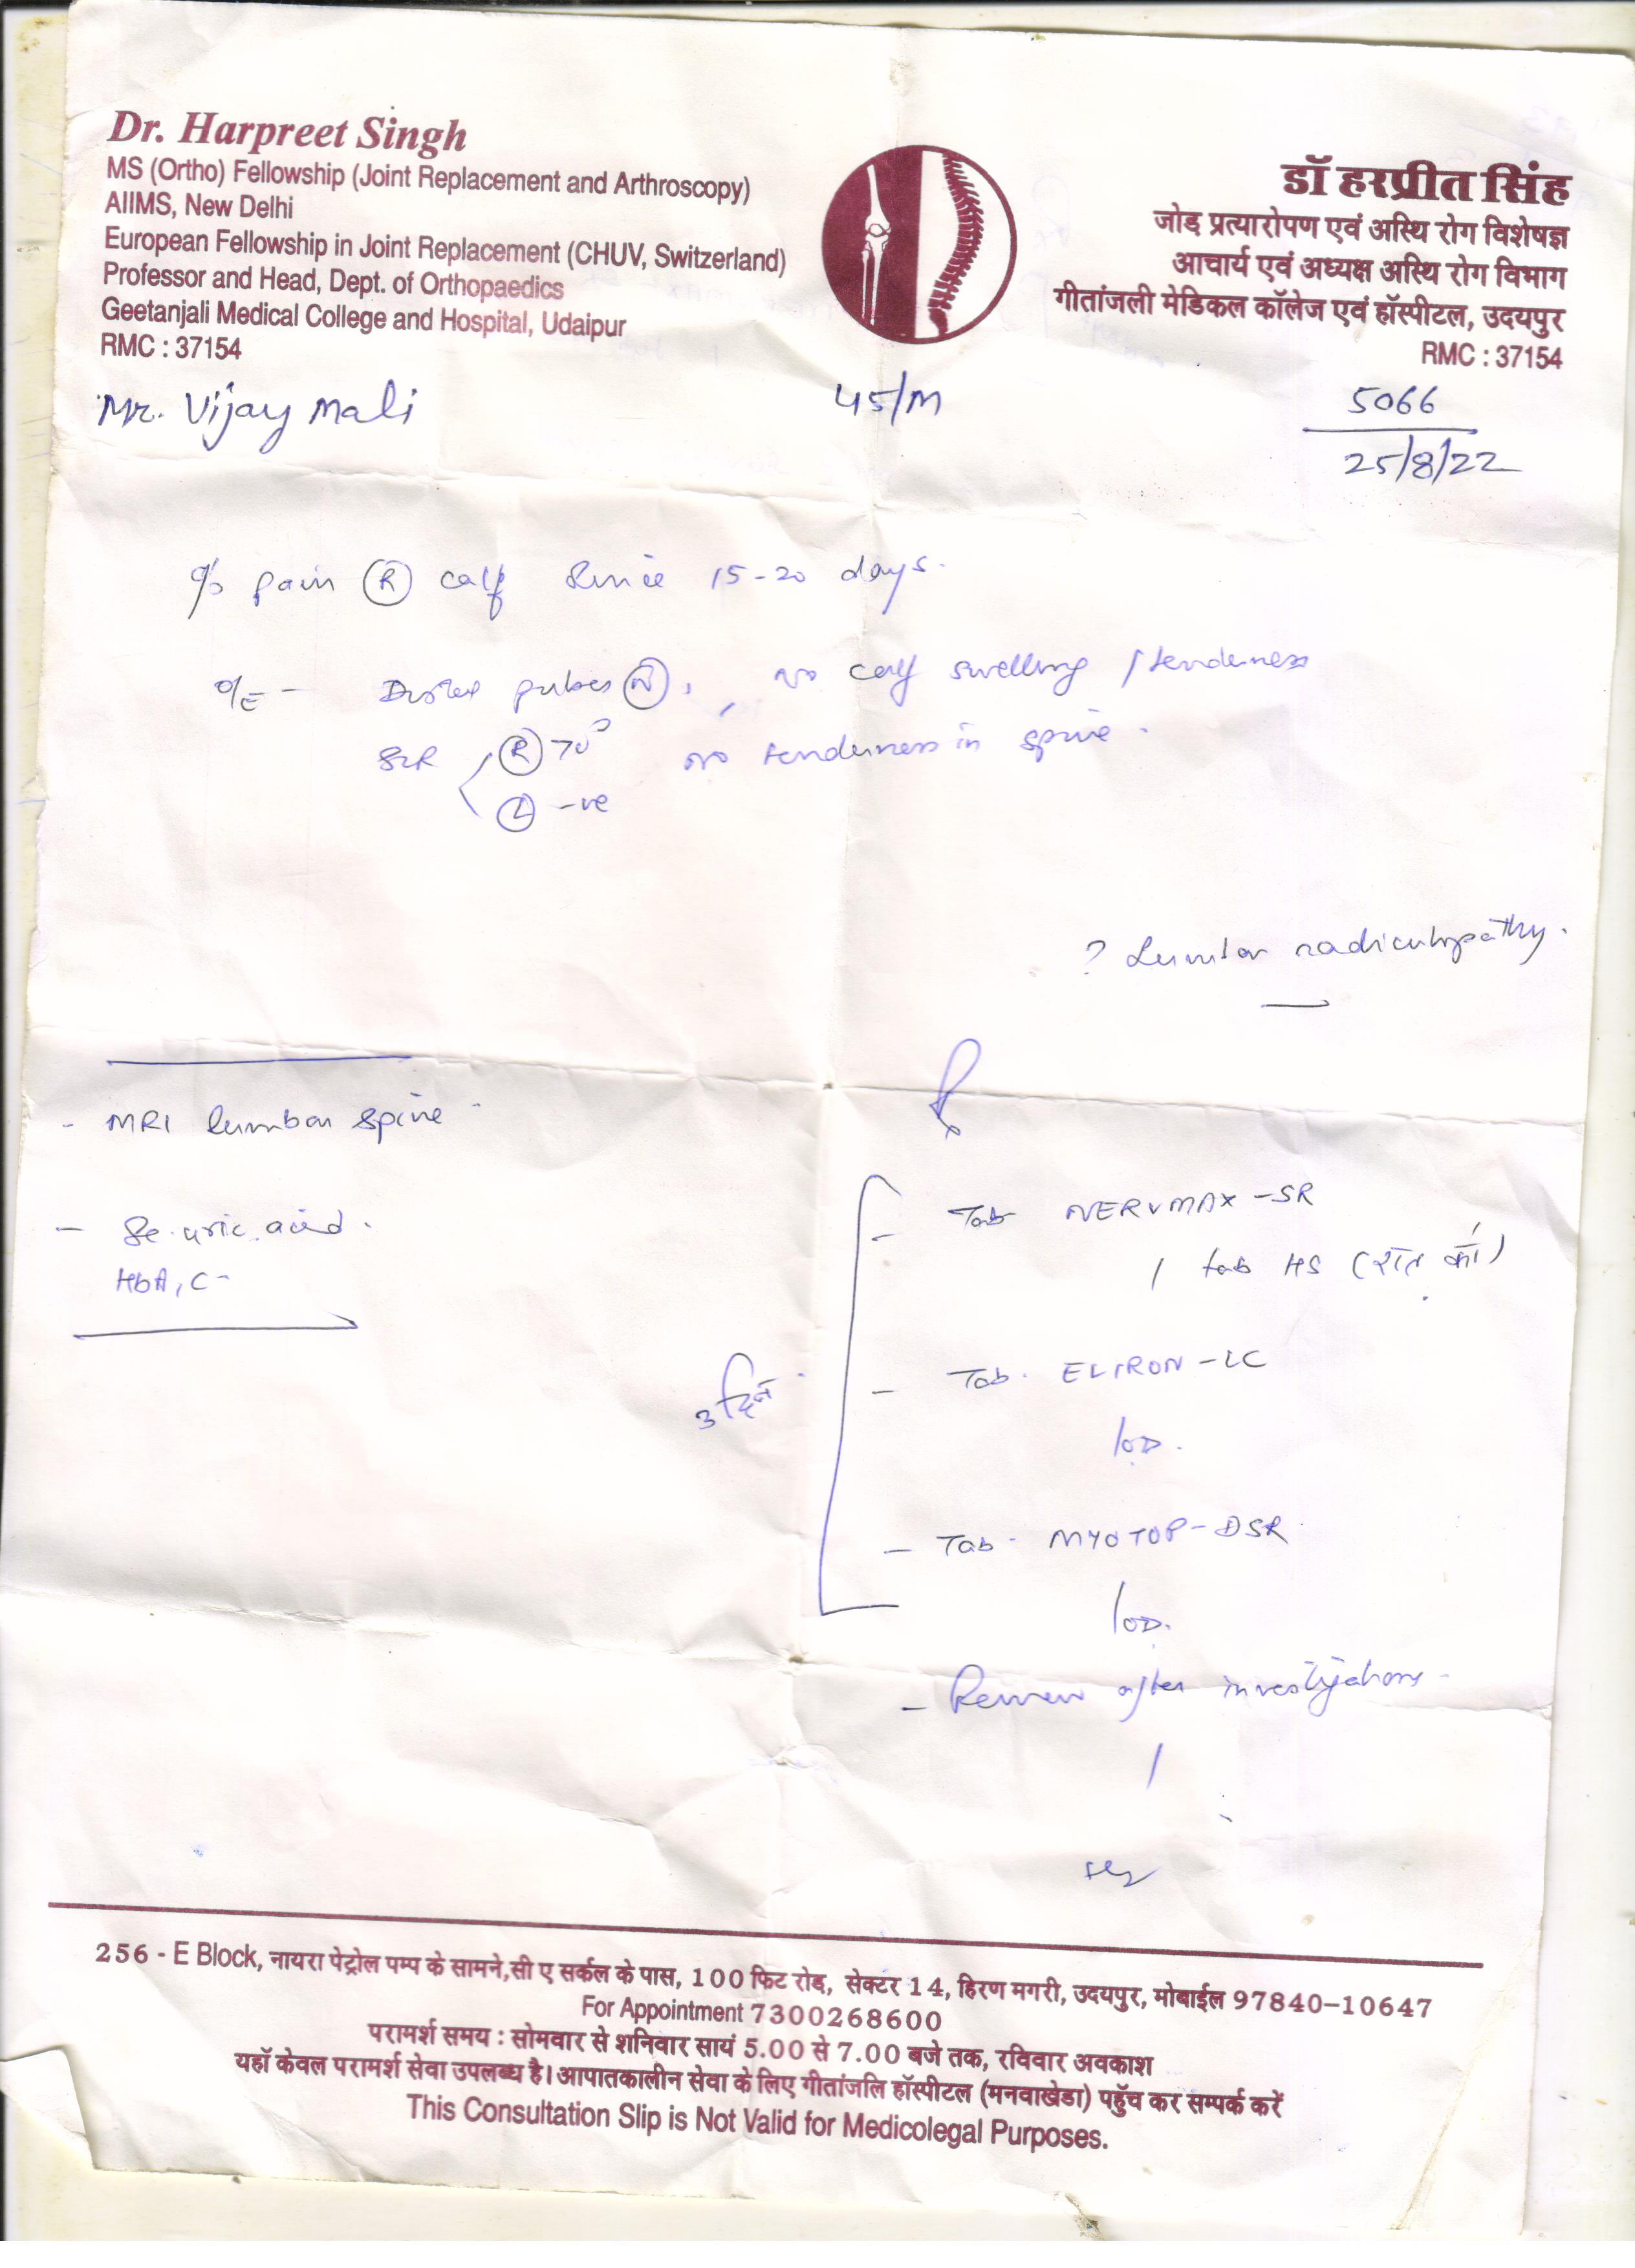 Dr. Harpreet Singh
MS (Ortho) Fellowship (Joint Replacement and Arthroscopy)
AIIMS, New Delhi
European Fellowship in Joint Replacement (CHUV, Switzerland)
Professor and Head, Dept. of Orthopaedics
Geetanjali Medical College and Hospital, Udaipur
RMC : 37154
डॉ हरप्रीत सिंह
जोड़ प्रत्यारोपण एवं अस्थि रोग विशेषज्ञ
आचार्य एवं अध्यक्ष अस्थि रोग विभाग
गीतांजली मेडिकल कॉलेज एवं हॉस्पीटल, उदयपुर
RMC : 37154
Mr. Vijay Mali 45/M 5066
25/8/22
pain (R) calf since 15-20 days.
O/E - Distal pulses (N), no calf swelling / tenderness
SLR (R) 70° no tenderness in spine.
(L) -ve
? Lumbar radiculopathy.
- MRI lumbar spine -
- Se. uric acid.
HbA1C -
- Tab NERVMAX-SR
1 tab HS (रात को)
3 दिन
- Tab. -LC
1 OD.
- Tab. MYOTOP-DSR
1 OD.
- Review after investigations -
256 - E Block, नायरा पेट्रोल पम्प के सामने,सी ए सर्कल के पास, 100 फिट रोड, सेक्टर 14, हिरण मगरी, उदयपुर, मोबाईल 97840-10647
For Appointment 7300268600
परामर्श समय : सोमवार से शनिवार सायं 5.00 से 7.00 बजे तक, रविवार अवकाश
यहाँ केवल परामर्श सेवा उपलब्ध है। आपातकालीन सेवा के लिए गीतांजलि हॉस्पीटल (मनवाखेडा) पहुँच कर सम्पर्क करें
This Consultation Slip is Not Valid for Medicolegal Purposes.